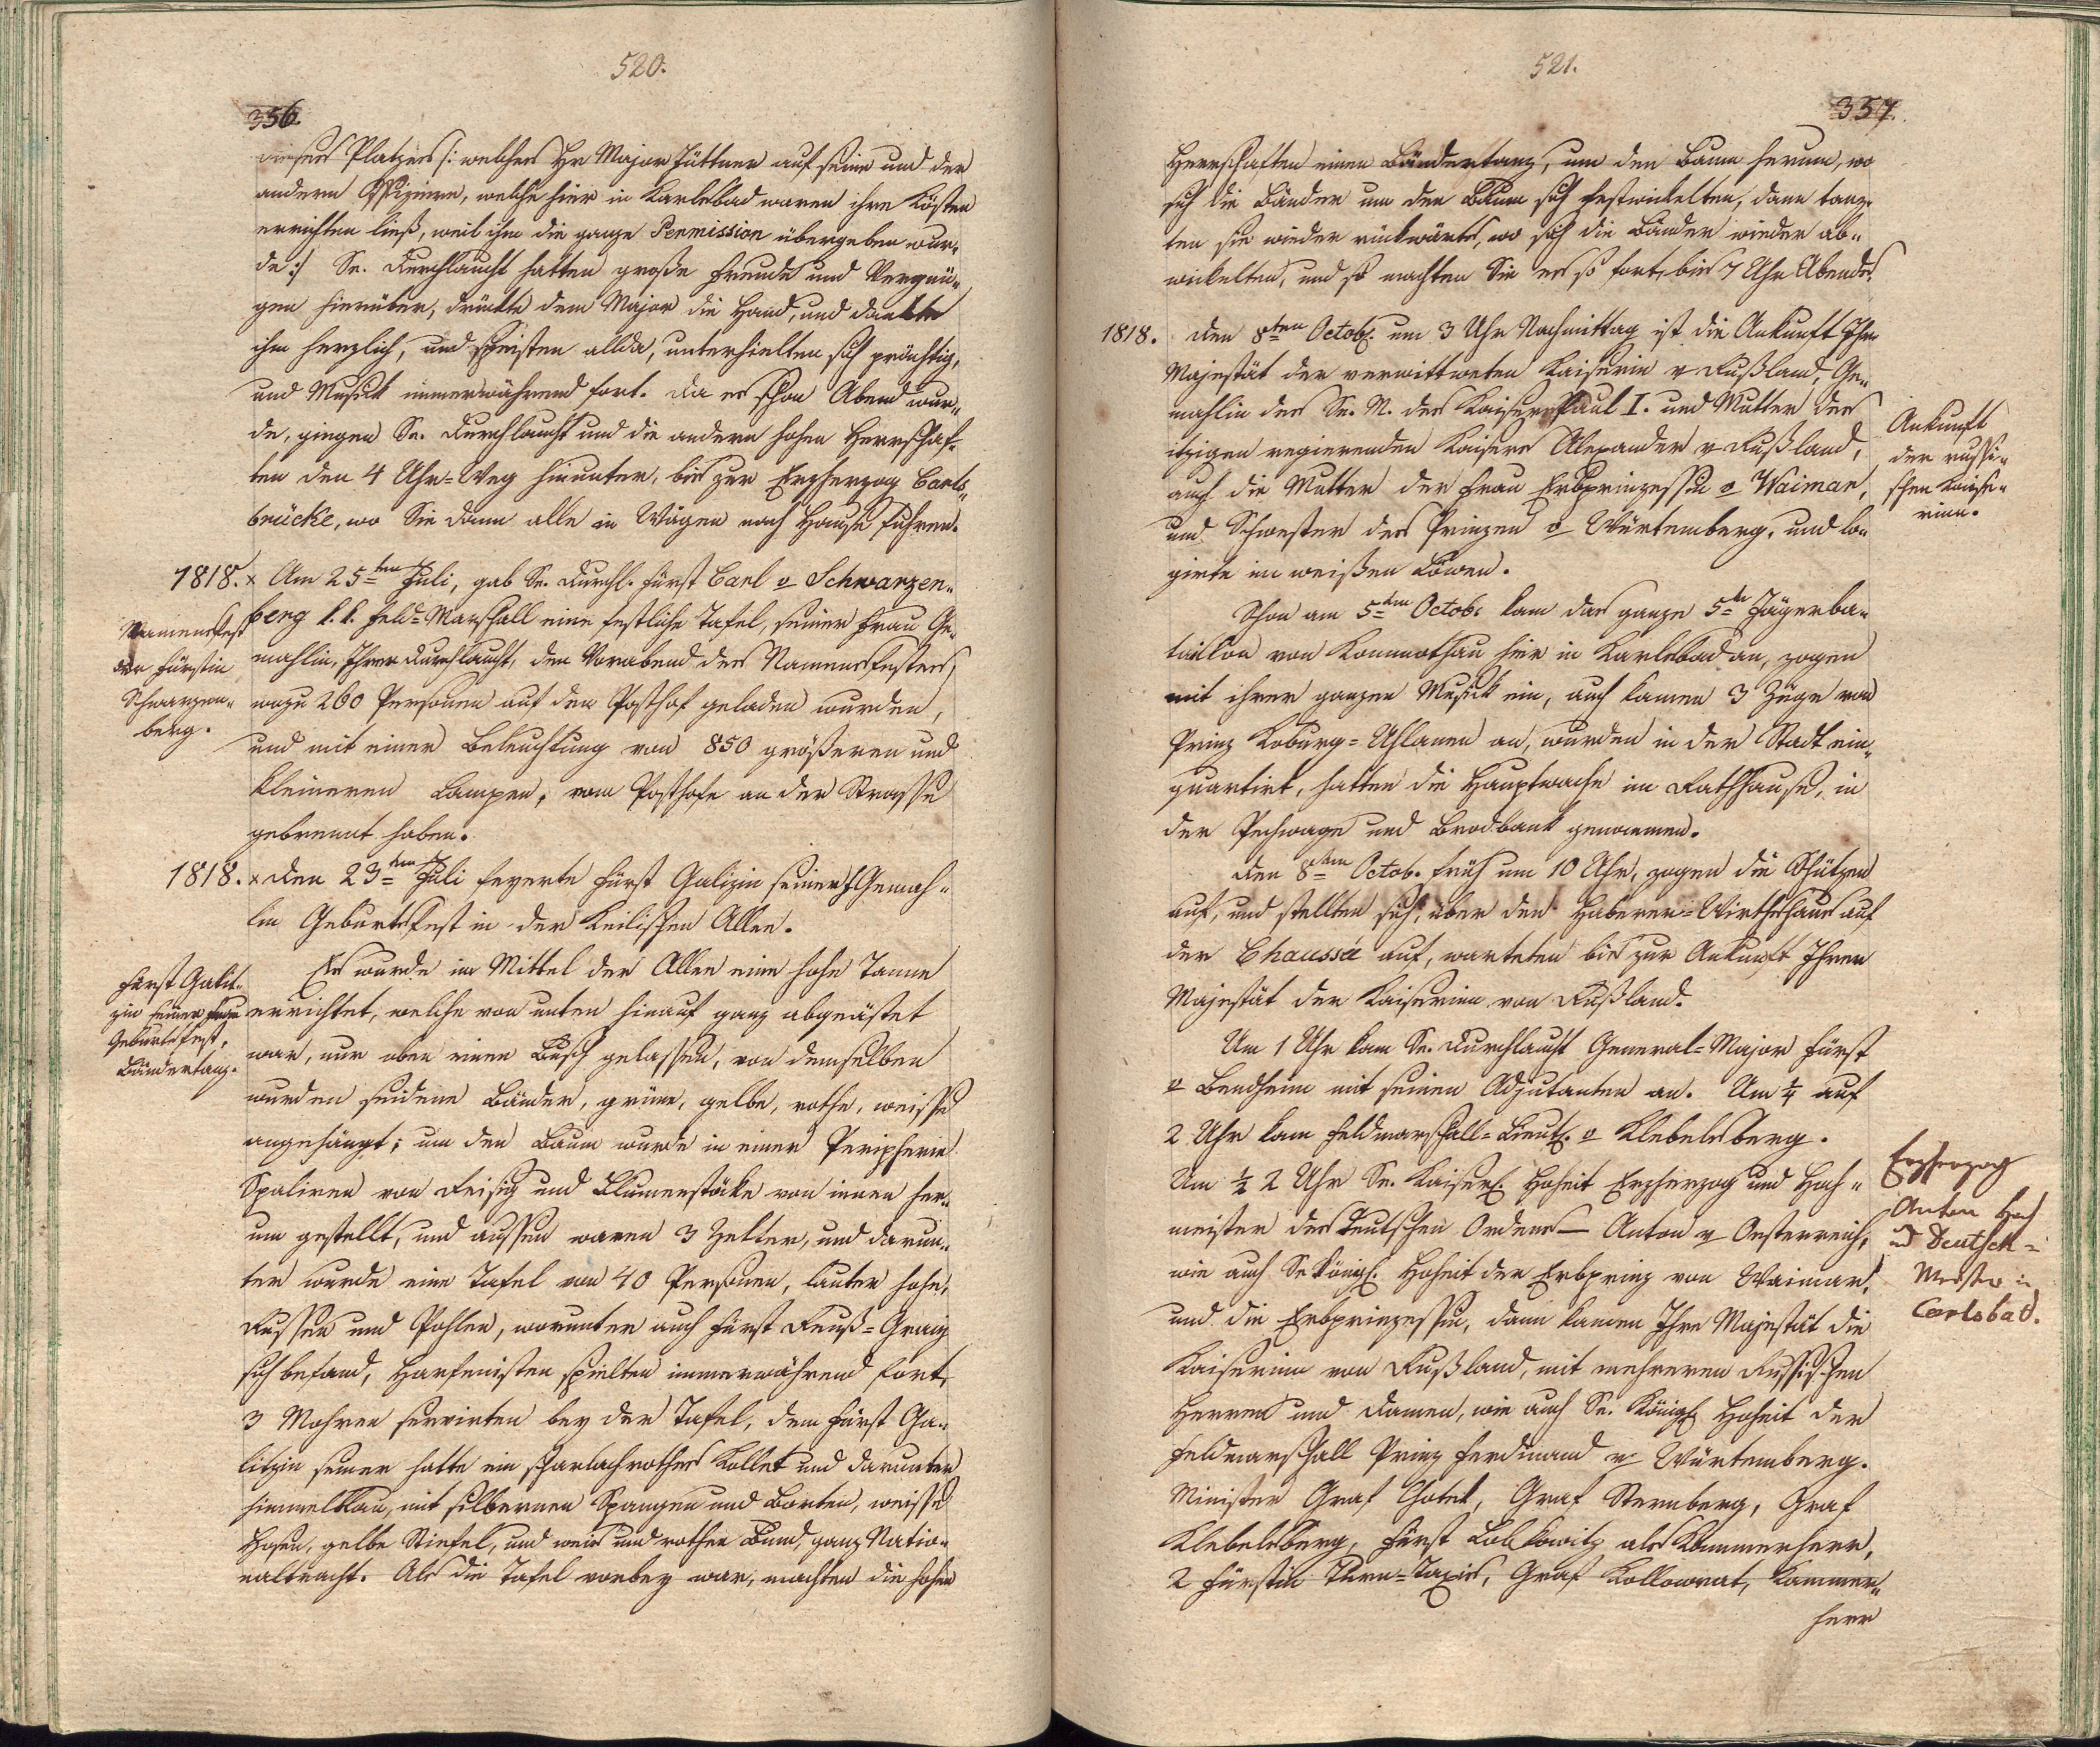 520.
356.
dieses Platzes /: welches Hr Major Tüttner auf seine und der
andern Offiziere, welche hier in Karlsbad waren ihre Kösten
errichten ließ, weil ihm die ganze Permission übergeben wur„
de :/ Se. Durchlaucht hatten große Freude und Vergnü„
gen hierüber, drückte dem Major die Hand, und dankte
ihm herzlich, und speisten allda, unterhielten sich prächtig,
und Musick immerwährend fort. Da es schon Abend wur„
de, giengen Se. Durchlaucht und die andern hohen Herrschaf„
ten den 4 Uhr=Weg hinunter, bis zur Erzherzog Carls„
brücke, wo Sie dann alle in Wägen nach Hause fuhren.
1818. x Am 25ten Juli, gab Se. Durchl. Fürst Carl v Schwarzen„
berg k. k. Feld=Marschall eine festliche Tafel, seiner Frau Ge„
mahlin, Ihrer Durchlaucht, den Vorabend des Namensfestes,
wozu 260 Personen auf den Posthof geladen wurden,
und mit einer Beleuchtung von 850 größeren und
kleineren Lampen, vom Posthofe an der Strasse
gebrennt haben.
Namensfest
der Fürstin
Schwarzen„
berg.
1818. x Den 23ten Juli feyerte Fürst Galizin seiner Gemah„
lin Geburtsfest in der Keilischen Allee.
Es wurde im Mittel der Allee eine hohe Tanne
errichtet, welche von unten hinauf ganz abgeästet
war, nur oben einen Busch gelassen, von demselben
wurden seidene Bänder, grüne, gelbe, rothe, weisse
angehängt; um den Baum wurde in einer Peripherie
Spaliren von Reisig und Blumenstöcke von innen her„
um gestellt, und aussen waren 3 Zelter, und darun„
ter wurde eine Tafel von 40 Personen, lauter hohe,
Russen und Pohlen, worunter auch Fürst Reuß=Graiz
sich befand, Harfenisten spielten immerwährend fort,
3 Mohren servirten bey der Tafel, dem Fürst Ga„
litzin seiner hatte ein scharlachrothes Kollet und darunter
himmelblau, mit silbernen Spangen und Borten, weisse
Hosen, gelbe Stiefel, und weis und rothen Bund, ganz Natio„
naltracht. Als die Tafel vorbey war, machten die hohen
Fürst Galit„
zin seiner Frau
Geburtsfest,
Bändertanz.
521.
357.
Herrschaften einen Bändertanz, um den Baum herum, wo
sich die Bänder um den Baum sich festwickelten, dann tanz„
ten sie wieder rückwärts, wo sich die Bänder wieder ab„
wickelten, und so machten Sie es so fort, bis 7 Uhr Abends.
1818. Den 8ten Octob. um 3 Uhr Nachmittag ist die Ankunft Ihre
Majestät der verwittweten Kaiserin v Rußland, Ge„
mahlin des Se. M. des Kaisers Paul I. und Mutter des
itzigen regierenden Kaisers Alexander v Rußland,
auch die Mutter der Frau Erbprinzessin v Waimar,
und Schwester des Prinzen v Würtemberg, und lo„
girte im weißen Löwen.
Ankunft
der russi„
schen Kaise„
rinn.
Schon am 5ten Octob. kam das ganze 5te Jägerba„
taillon von Kommothau hier in Karlsbad an, zogen
mit ihrer ganzen Musick ein, auch kamen 3 Züge von
Prinz Koburg=Uhlanen an, wurden in der Stadt ein„
quartirt, hatten die Hauptwache im Rathhause, in
der Pechwage und Brodbank genommen.
Den 8ten Octob. früh um 10 Uhr, zogen die Schützen
auf, und stellten sich, über den Haberer=Wirthshaus auf
der Chaussé auf, warteten bis zur Ankunft Ihrer
Majestät der Kaiserinn von Rußland.
Um 1 Uhr kam Se. Durchlaucht General=Major Fürst
v Bendheim mit seinen Adjutanten an. Um ¼ auf
2 Uhr kam Feldmarschall=Lieut. v Klebelsberg.
Um ½ 2 Uhr Se. Kaiserl. Hoheit Erzherzog und Hoch„
meister des teutschen Ordens — Anton v Oesterreich,
wie auch Se Königl. Hoheit der Erbprinz von Waimar,
und die Erbprinzessin, dann kamen Ihre Majestät die
Kaiserinn von Rußland, mit mehreren Russischen
Herren und Damen, wie auch Se. Königl. Hoheit der
Feldmarschall Prinz Ferdinand v Würtemberg.
Minister Graf Chotek, Graf Sternberg, Graf
Klebelsberg, Fürst Lobkowitz als Kammerherr,
2 Fürstin Thurn=Taxis, Graf Kollowrat, Kammer„
herr
Erzherzog
Anton Hoch
und Deutsch=
Meister in
Carlsbad.